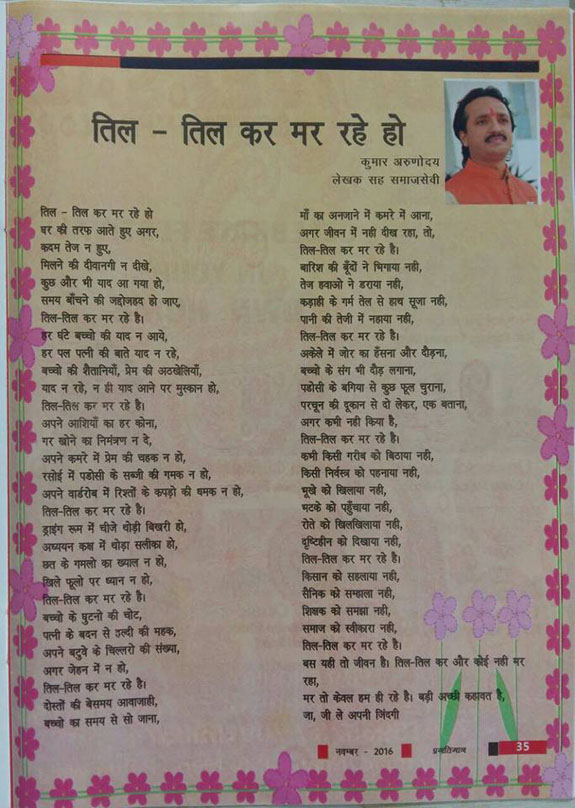 तिल – तिल कर मर रहे हो
कुमार अरुणोदय
लेखक सह समाजसेवी
तिल – तिल कर मर रहे हो
घर की तरफ आते हुए अगर,
कदम तेज न हुए,
मिलने की दीवानगी न दीखे,
कुछ और भी याद आ गया हो,
समय बाँचने की जद्दोजहद हो जाए,
तिल-तिल कर मर रहे है।
हर घंटे बच्चो की याद न आये,
हर पल पत्नी की बाते याद न रहे,
बच्चो की शैतानियाँ, प्रेम की अठखेलियाँ,
याद न रहे, न ही याद आने पर मुस्कान हो,
तिल-तिल कर मर रहे है।
अपने आशियाँ का हर कोना,
गर खोने का निमंत्रण न दे,
अपने कमरे में प्रेम की चहक न हो,
रसोई में पडोसी के सब्जी की गमक न हो,
अपने वार्डरोब में रिश्तों के कपड़ो की धमक न हो,
तिल-तिल कर मर रहे है।
ड्राइंग रूम में चीजे थोड़ी बिखरी हो,
अध्ययन कक्ष में थोड़ा सलीका हो,
छत के गमलो का ख्याल न हो,
खिले फूलो पर ध्यान न हो,
तिल-तिल कर मर रहे है।
बच्चो के घुटनो की चोट,
पत्नी के बदन से हल्दी की महक,
अपने बटुवे के चिल्लरो की संख्या,
अगर जेहन में न हो,
तिल-तिल कर मर रहे है।
दोस्तों की बेसमय आवाजाही,
बच्चो का समय से सो जाना,
माँ का अनजाने में कमरे में आना,
अगर जीवन में नही दीख रहा, तो,
तिल-तिल कर मर रहे है।
बारिश की बूँदों ने भिगाया नही,
तेज हवाओ ने डराया नही,
कड़ाही के गर्म तेल से हाथ सूजा नही,
पानी की तेजी में नहाया नही,
तिल-तिल कर मर रहे है।
अकेले में जोर का हँसना और दौड़ना,
बच्चो के संग भी दौड़ लगाना,
पडोसी के बगिया से कुछ फूल चुराना,
परचून की दूकान से दो लेकर, एक बताना,
अगर कभी नही किया है,
तिल-तिल कर मर रहे है।
कभी किसी गरीब को बिठाया नही,
किसी निर्वस्त्र को पहनाया नही,
भूखे को खिलाया नही,
भटके को पहुँचाया नही,
रोते को खिलखिलाया नही,
दृष्टिहीन को दिखाया नही,
तिल-तिल कर मर रहे है।
किसान को सहलाया नही,
सैनिक को सम्हाला नही,
शिक्षक को समझा नही,
समाज को स्वीकारा नही,
तिल-तिल कर मर रहे है।
बस यही तो जीवन है। तिल-तिल कर और कोई नही मर
रहा,
मर तो केवल हम ही रहे है। बड़ी अच्छी कहावत है,
जा, जी ले अपनी जिंदगी
नवम्बर - 2016
35